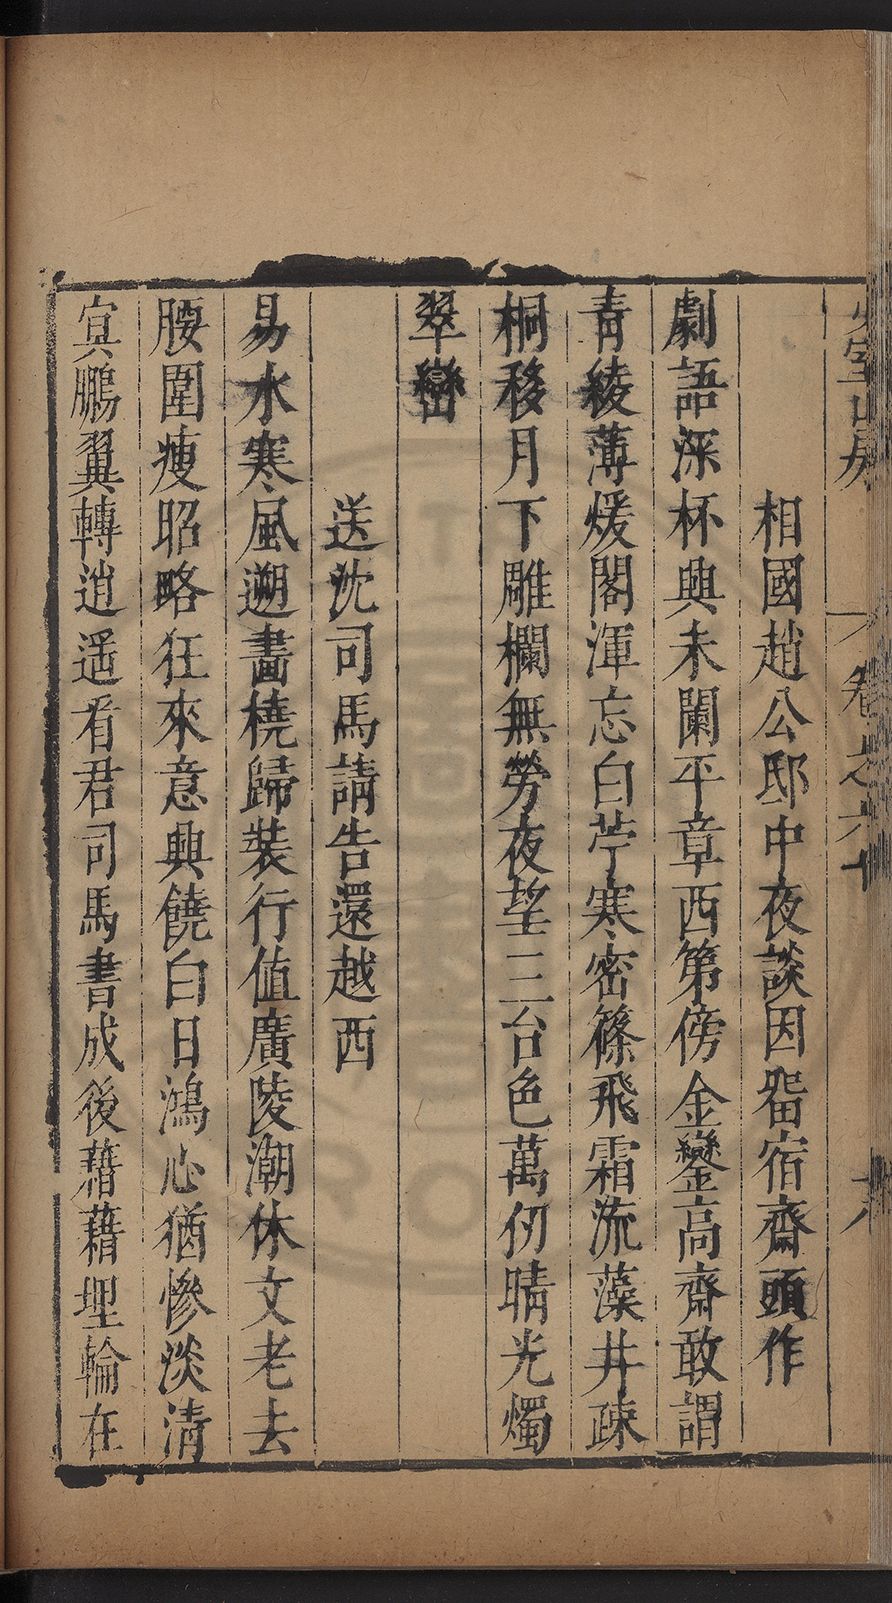 少室山房
卷之六十
六
相國趙公邸中夜談因畱宿齋頭作
劇語深杯興未闌平章西第傍金鑾高齋敢謂
青綾薄煖閣渾忘白苧寒密篠飛霜流藻井疎
桐移月下雕欄無勞夜望三台色萬仞晴光燭
翠巒
送沈司馬請告還越西
易水寒風遡畫橈歸裝行值廣陵潮休文老去
腰圍瘦昭略狂來意興饒白日鴻心猶慘淡清
㝠鵬翼轉逍遥看君司馬書成後藉藉埋輪在